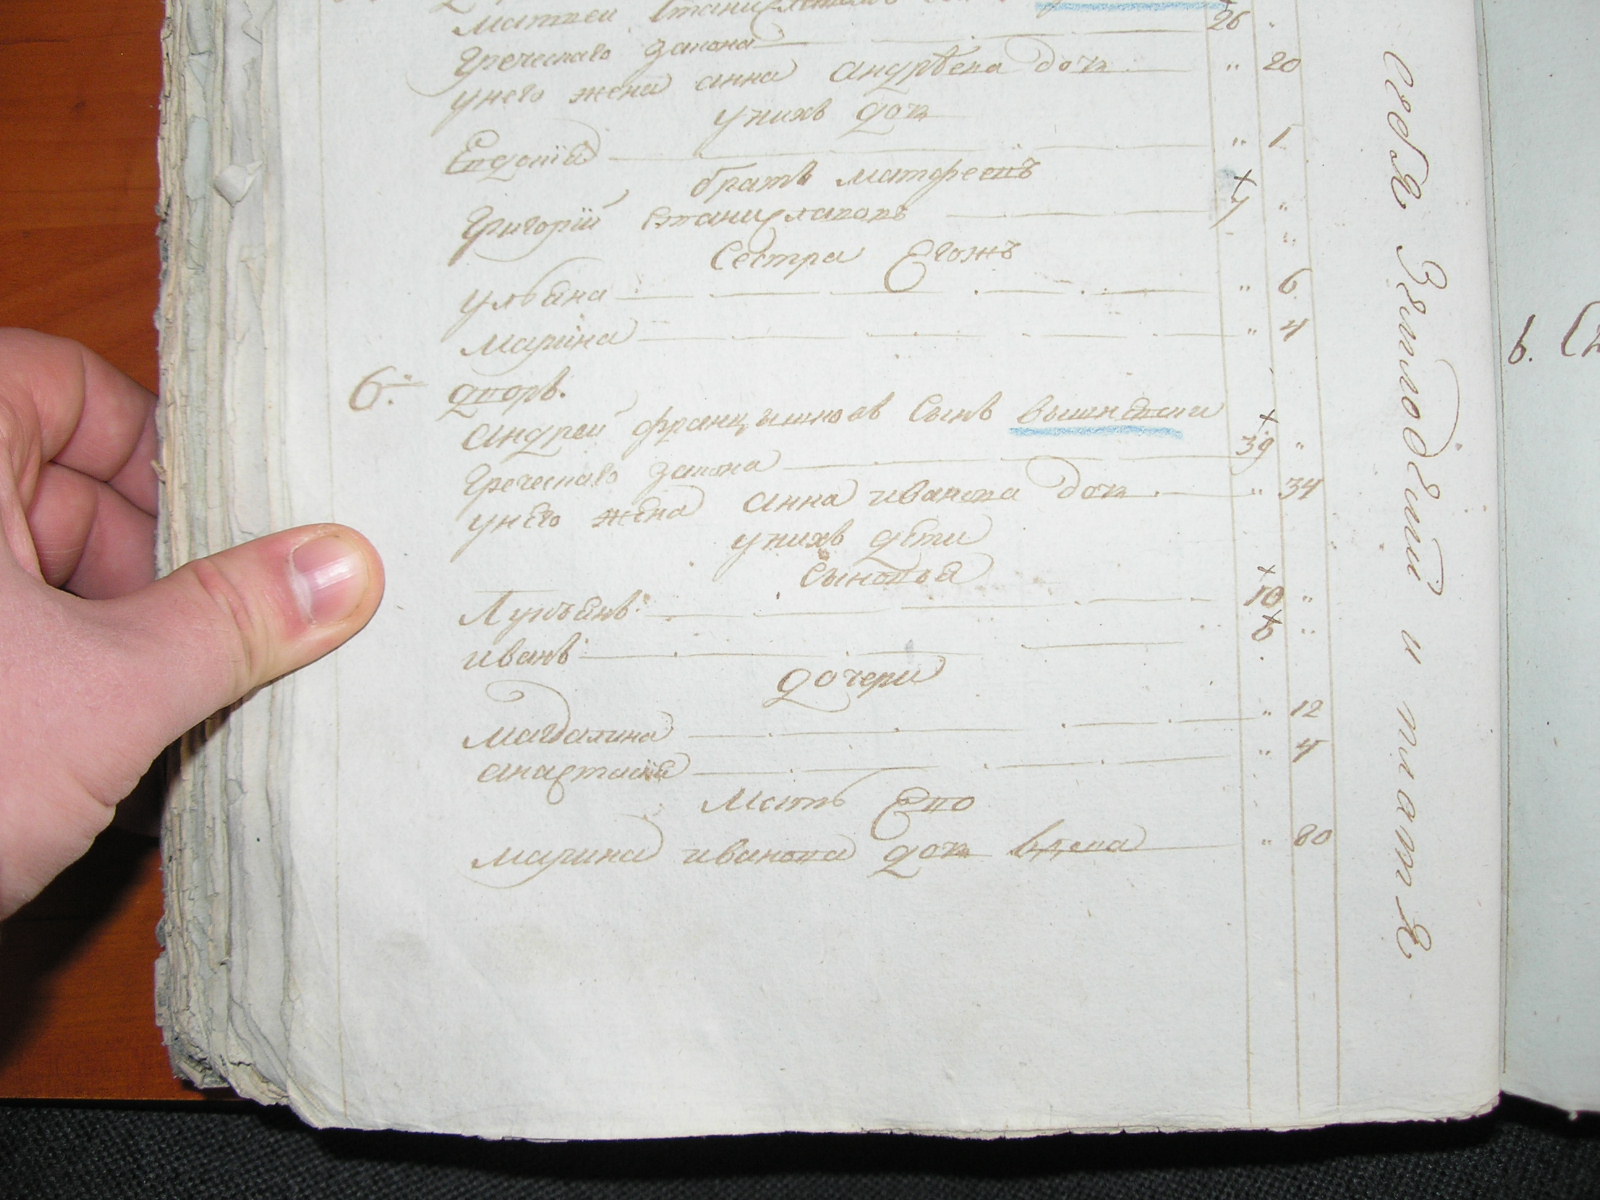 матвей станиславовъ сынъ
26
греческаго закона
унего жена анна андрѣева доч " 20
унихъ доч
Евдокія " 1
братъ матфеевъ
Григорій Станиславовъ 7 "
Сестра Егожъ
ульѣна " 6
марина " 4
6. дворъ.
андрей францышковъ сынъ вышнѣвски
греческаго закона 39 "
унѣго жѣна анна иванова доч " 34
унихъ дѣти
сыновья
Лукъѣнъ 10 "
иванъ 6 "
дочери
магдалина " 12
анастасия " 4
мать Ево
марина иванова доч вдова " 80
себя Земледелий и платя
6.